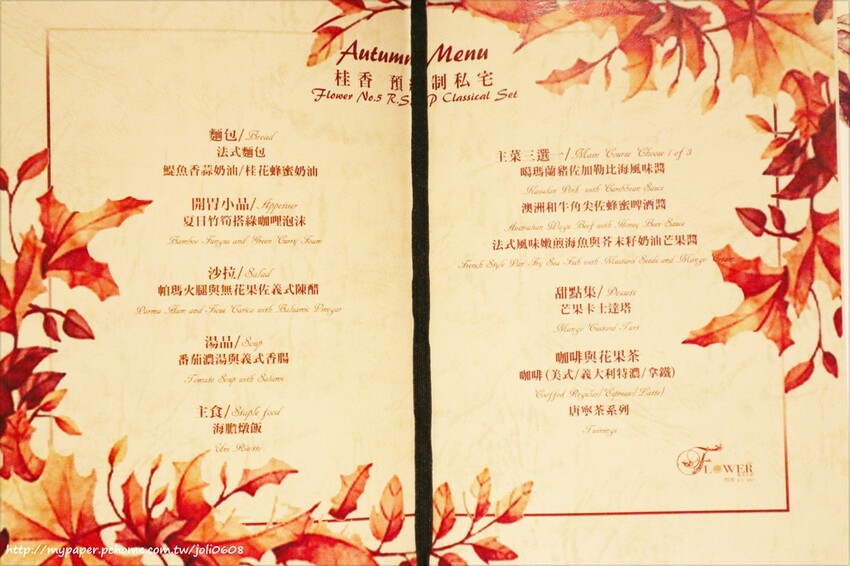 Autumn Menu
桂香 預約制私宅
Flower No.5 R.S.V.P Classical Set
麵包/Bread
法式麵包
鯷魚香蒜奶油/桂花蜂蜜奶油
開胃小品/Appetiser
夏日竹筍搭綠咖哩泡沫
Bamboo Fungus and Green Curry Foam
沙拉/Salad
帕瑪火腿與無花果佐義式陳醋
Parma Ham and Ficus Carica with Balsamic Vinegar
湯品/Soup
番茄濃湯與義式香腸
Tomato Soup with Salami
主食/Staple food
海膽燉飯
Uni Risotto
主菜三選一/Main Course Choose 1 of 3
噶瑪蘭豬佐加勒比海風味醬
Kavalan Pork with Caribbean Sauce
澳洲和牛角尖佐蜂蜜啤酒醬
Australian Wagu Beef with Honey Beer Sauce
法式風味嫩煎海魚與芥末籽奶油芒果醬
French Style Pan Fry Sea Fish with Mustard Seeds and Mango Cream
甜點集/Desserts
芒果卡士達塔
Mango Custard Tart
咖啡與花果茶
咖啡(美式/義大利特濃/拿鐵)
唐寧茶系列
Twinings
FLOWER
http://mypaper.pchome.com.tw/joli0608